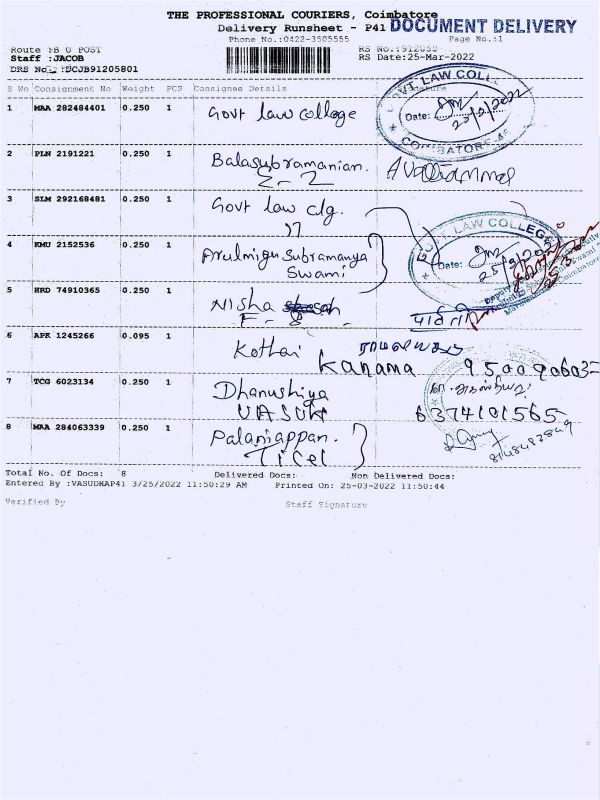 THE PROFESSIONAL COURIERS, Coimbatore
Delivery Runsheet - P41 DOCUMENT DELIVERY
Phone No.:0422-3505555 Page No.:1
Route :B O POST RS No.:912055
Staff :JACOB RS Date:25-Mar-2022
DRS No_:DCJB91205801
S No Consignment No Weight PCS Consignee Details Signature
1 MAA 282484401 0.250 1 Govt law college
GOVT LAW COLLEGE
Date:
COIMBATORE-46
2 PLN 2191221 0.250 1 Balasubramanian.
2-2
3 SLM 292168481 0.250 1 Govt law clg.
17
4 KMU 2152536 0.250 1 Arulmigu Subramanya
Swami
GOVT LAW COLLEGE
Date:
5 HRD 74910365 0.250 1 Nisha
F-8
6 APK 1245266 0.095 1 Kothai
Kanama
7 TCG 6023134 0.250 1 Dhanushiya
VASUKI
6374101565
8 MAA 284063339 0.250 1 Palaniappan.
Ticel
Total No. Of Docs: 8 Delivered Docs: Non Delivered Docs:
Entered By :VASUDHAP41 3/25/2022 11:50:29 AM Printed On: 25-03-2022 11:50:44
Verified By Staff Signature